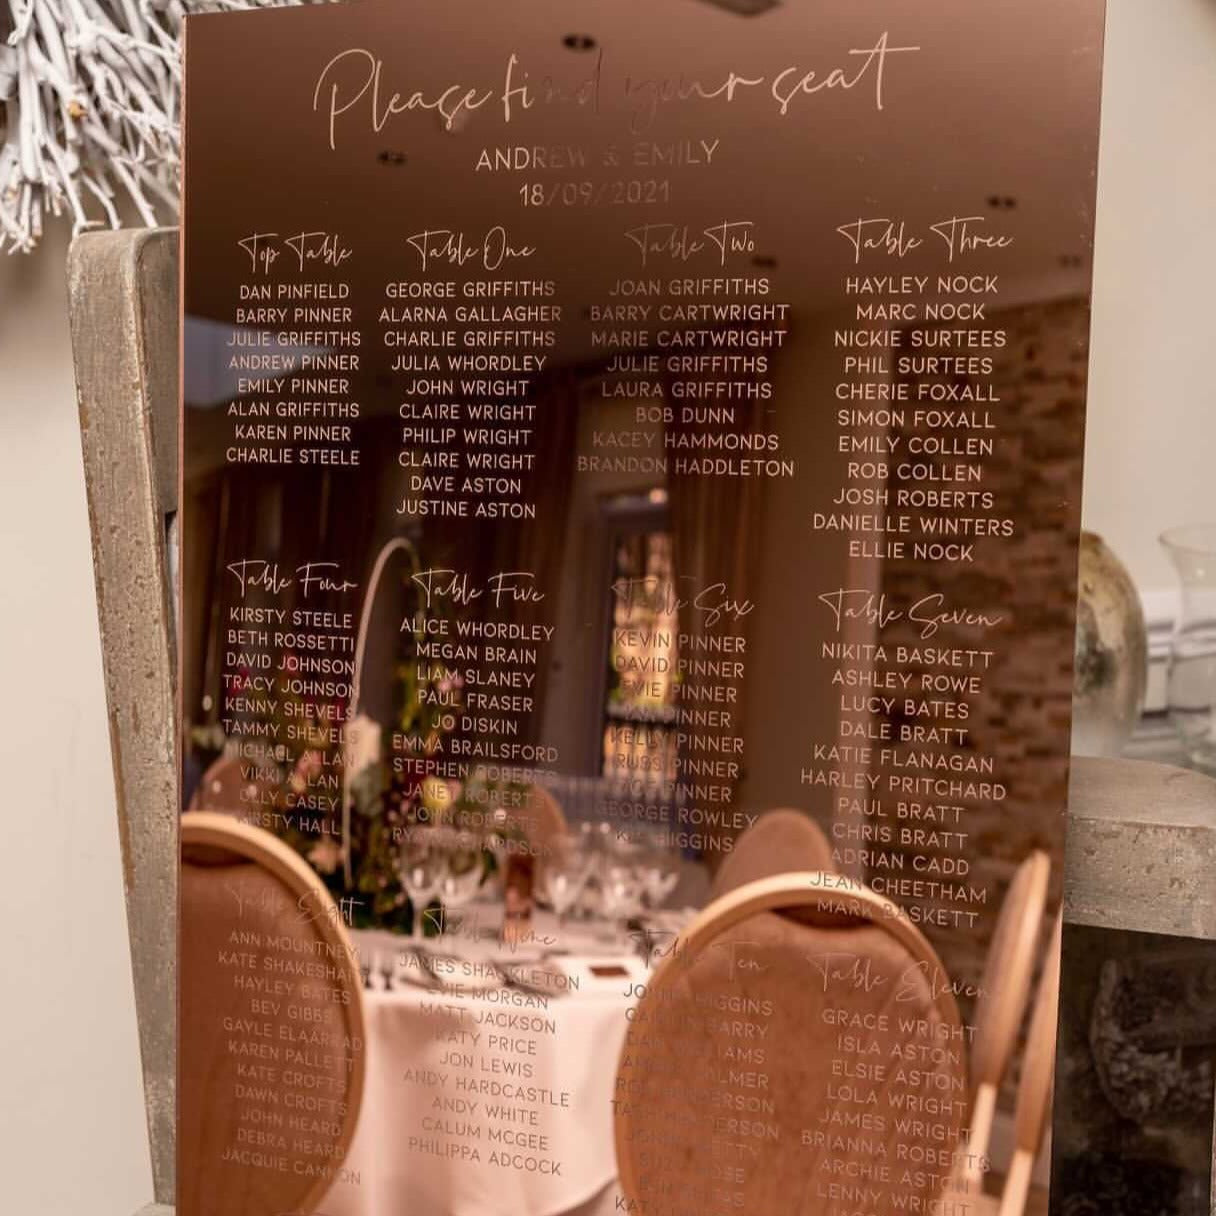 Please find your seat
ANDREW & EMILY
18/09/2021
Top Table
DAN PINFIELD
BARRY PINNER
JULIE GRIFFITHS
ANDREW PINNER
EMILY PINNER
ALAN GRIFFITHS
KAREN PINNER
CHARLIE STEELE
Table One
GEORGE GRIFFITHS
ALARNA GALLAGHER
CHARLIE GRIFFITHS
JULIA WHORDLEY
JOHN WRIGHT
CLAIRE WRIGHT
PHILIP WRIGHT
CLAIRE WRIGHT
DAVE ASTON
JUSTINE ASTON
Table Two
JOAN GRIFFITHS
BARRY CARTWRIGHT
MARIE CARTWRIGHT
JULIE GRIFFITHS
LAURA GRIFFITHS
BOB DUNN
KACEY HAMMONDS
BRANDON HADDLETON
Table Three
HAYLEY NOCK
MARC NOCK
NICKIE SURTEES
PHIL SURTEES
CHERIE FOXALL
SIMON FOXALL
EMILY COLLEN
ROB COLLEN
JOSH ROBERTS
DANIELLE WINTERS
ELLIE NOCK
Table Four
KIRSTY STEELE
BETH ROSSETTI
DAVID JOHNSON
TRACY JOHNSON
KENNY SHEVELS
TAMMY SHEVELS
MICHAEL ALLAN
VIKKI ALLAN
OLLY CASEY
KIRSTY HALL
Table Five
ALICE WHORDLEY
MEGAN BRAIN
LIAM SLANEY
PAUL FRASER
JO DISKIN
EMMA BRAILSFORD
STEPHEN ROBERTS
JANET ROBERTS
JOHN ROBERTS
RYAN RICHARDSON
Table Six
KEVIN PINNER
DAVID PINNER
EVIE PINNER
PINNER
KELLY PINNER
RUSS PINNER
PINNER
GEORGE ROWLEY
KIM HIGGINS
Table Seven
NIKITA BASKETT
ASHLEY ROWE
LUCY BATES
DALE BRATT
KATIE FLANAGAN
HARLEY PRITCHARD
PAUL BRATT
CHRIS BRATT
ADRIAN CADD
JEAN CHEETHAM
MARK BASKETT
Table Eight
ANN MOUNTNEY
KATE SHAKESHAFT
HAYLEY BATES
BEV GIBBS
GAYLE ELAARRAD
KAREN PALLETT
KATE CROFTS
DAWN CROFTS
JOHN HEARD
DEBRA HEARD
JACQUIE CANNON
Table Nine
JAMES SHACKLETON
EVIE MORGAN
MATT JACKSON
KATY PRICE
JON LEWIS
ANDY HARDCASTLE
ANDY WHITE
CALUM MCGEE
PHILIPPA ADCOCK
Table Ten
HIGGINS
BARRY
WILLIAMS
KATY
Table Eleven
GRACE WRIGHT
ISLA ASTON
ELSIE ASTON
LOLA WRIGHT
JAMES WRIGHT
BRIANNA ROBERTS
ARCHIE ASTON
LENNY WRIGHT